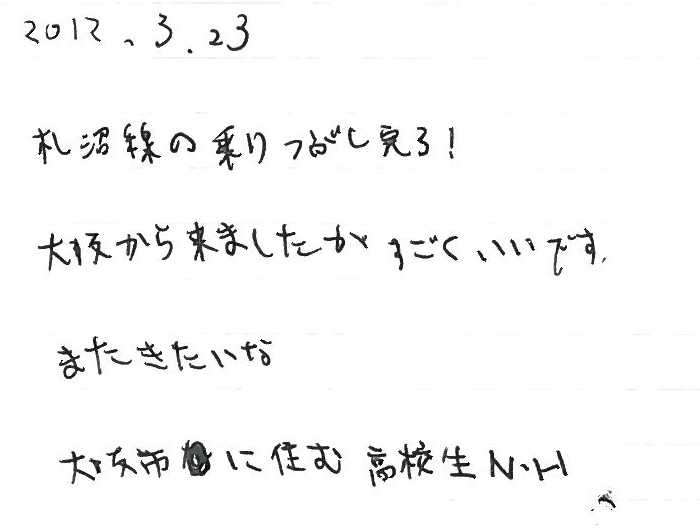 2012.3.23
札沼線の乗りつぶし完了!
大阪から来ましたが すごくいいです.
またきたいな
大阪市に住む 高校生 N.H